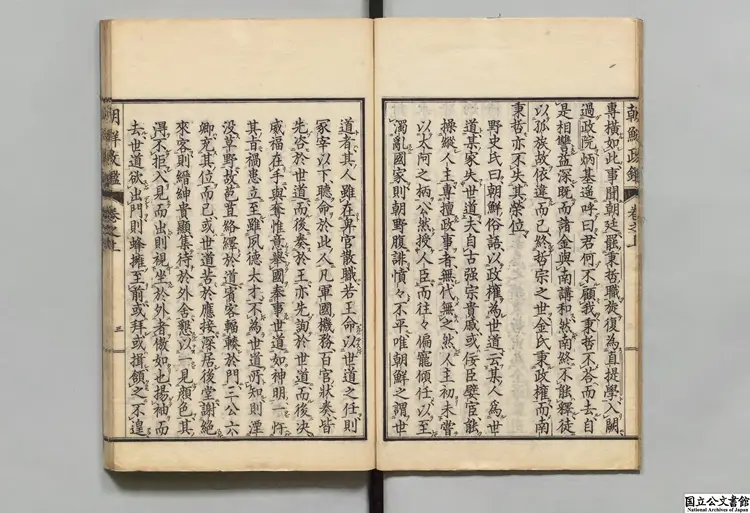 朝鮮政鑑
卷之上
專横如此事聞朝廷罷秉哲職旋復為直提學入闕
過政院炳基遥呼曰君何不顧我秉哲不答而去自
是相讐益深既而諸金與南講和然南終不能釋徒
以孤族故依違而已終哲宗之世金氏秉政權而南
秉哲亦不失其榮位
野史氏曰朝鮮俗語以政權為世道云某人為世
道某家失世道夫自古强宗貴戚或佞臣嬖宦能
操縱人主專擅政事者無代無之然人主初未嘗
以太阿之柄公然授人臣而往々偏寵傾任以至
濁亂國家則朝野腹誹憤々不平唯朝鮮之謂世
道者其人雖在卑官散職若王命以世道之任則
冢宰以下聽命於此人凡軍國機務百官狀奏皆
先咨於世道而後奏於王亦先詢於世道而後决
威福在手與奪惟意舉國奉事世道如神明一忤
其旨禍患立至雖夙德大才不為世道所知則湮
没草野故苞苴絡繹於道賓客輻輳於門三公六
卿充其位而已或世道苦於應接深居後堂謝絶
來客則縉紳貴顯集待於外舍懇以一見顔色其
得不拒入見而出則視坐於外者傲如也揚袖而
去世道欲出門則蜂擁至前或拜或揖頷之不遑
朝鮮政鑑
卷之上
三
国立公文書館
National Archives of Japan